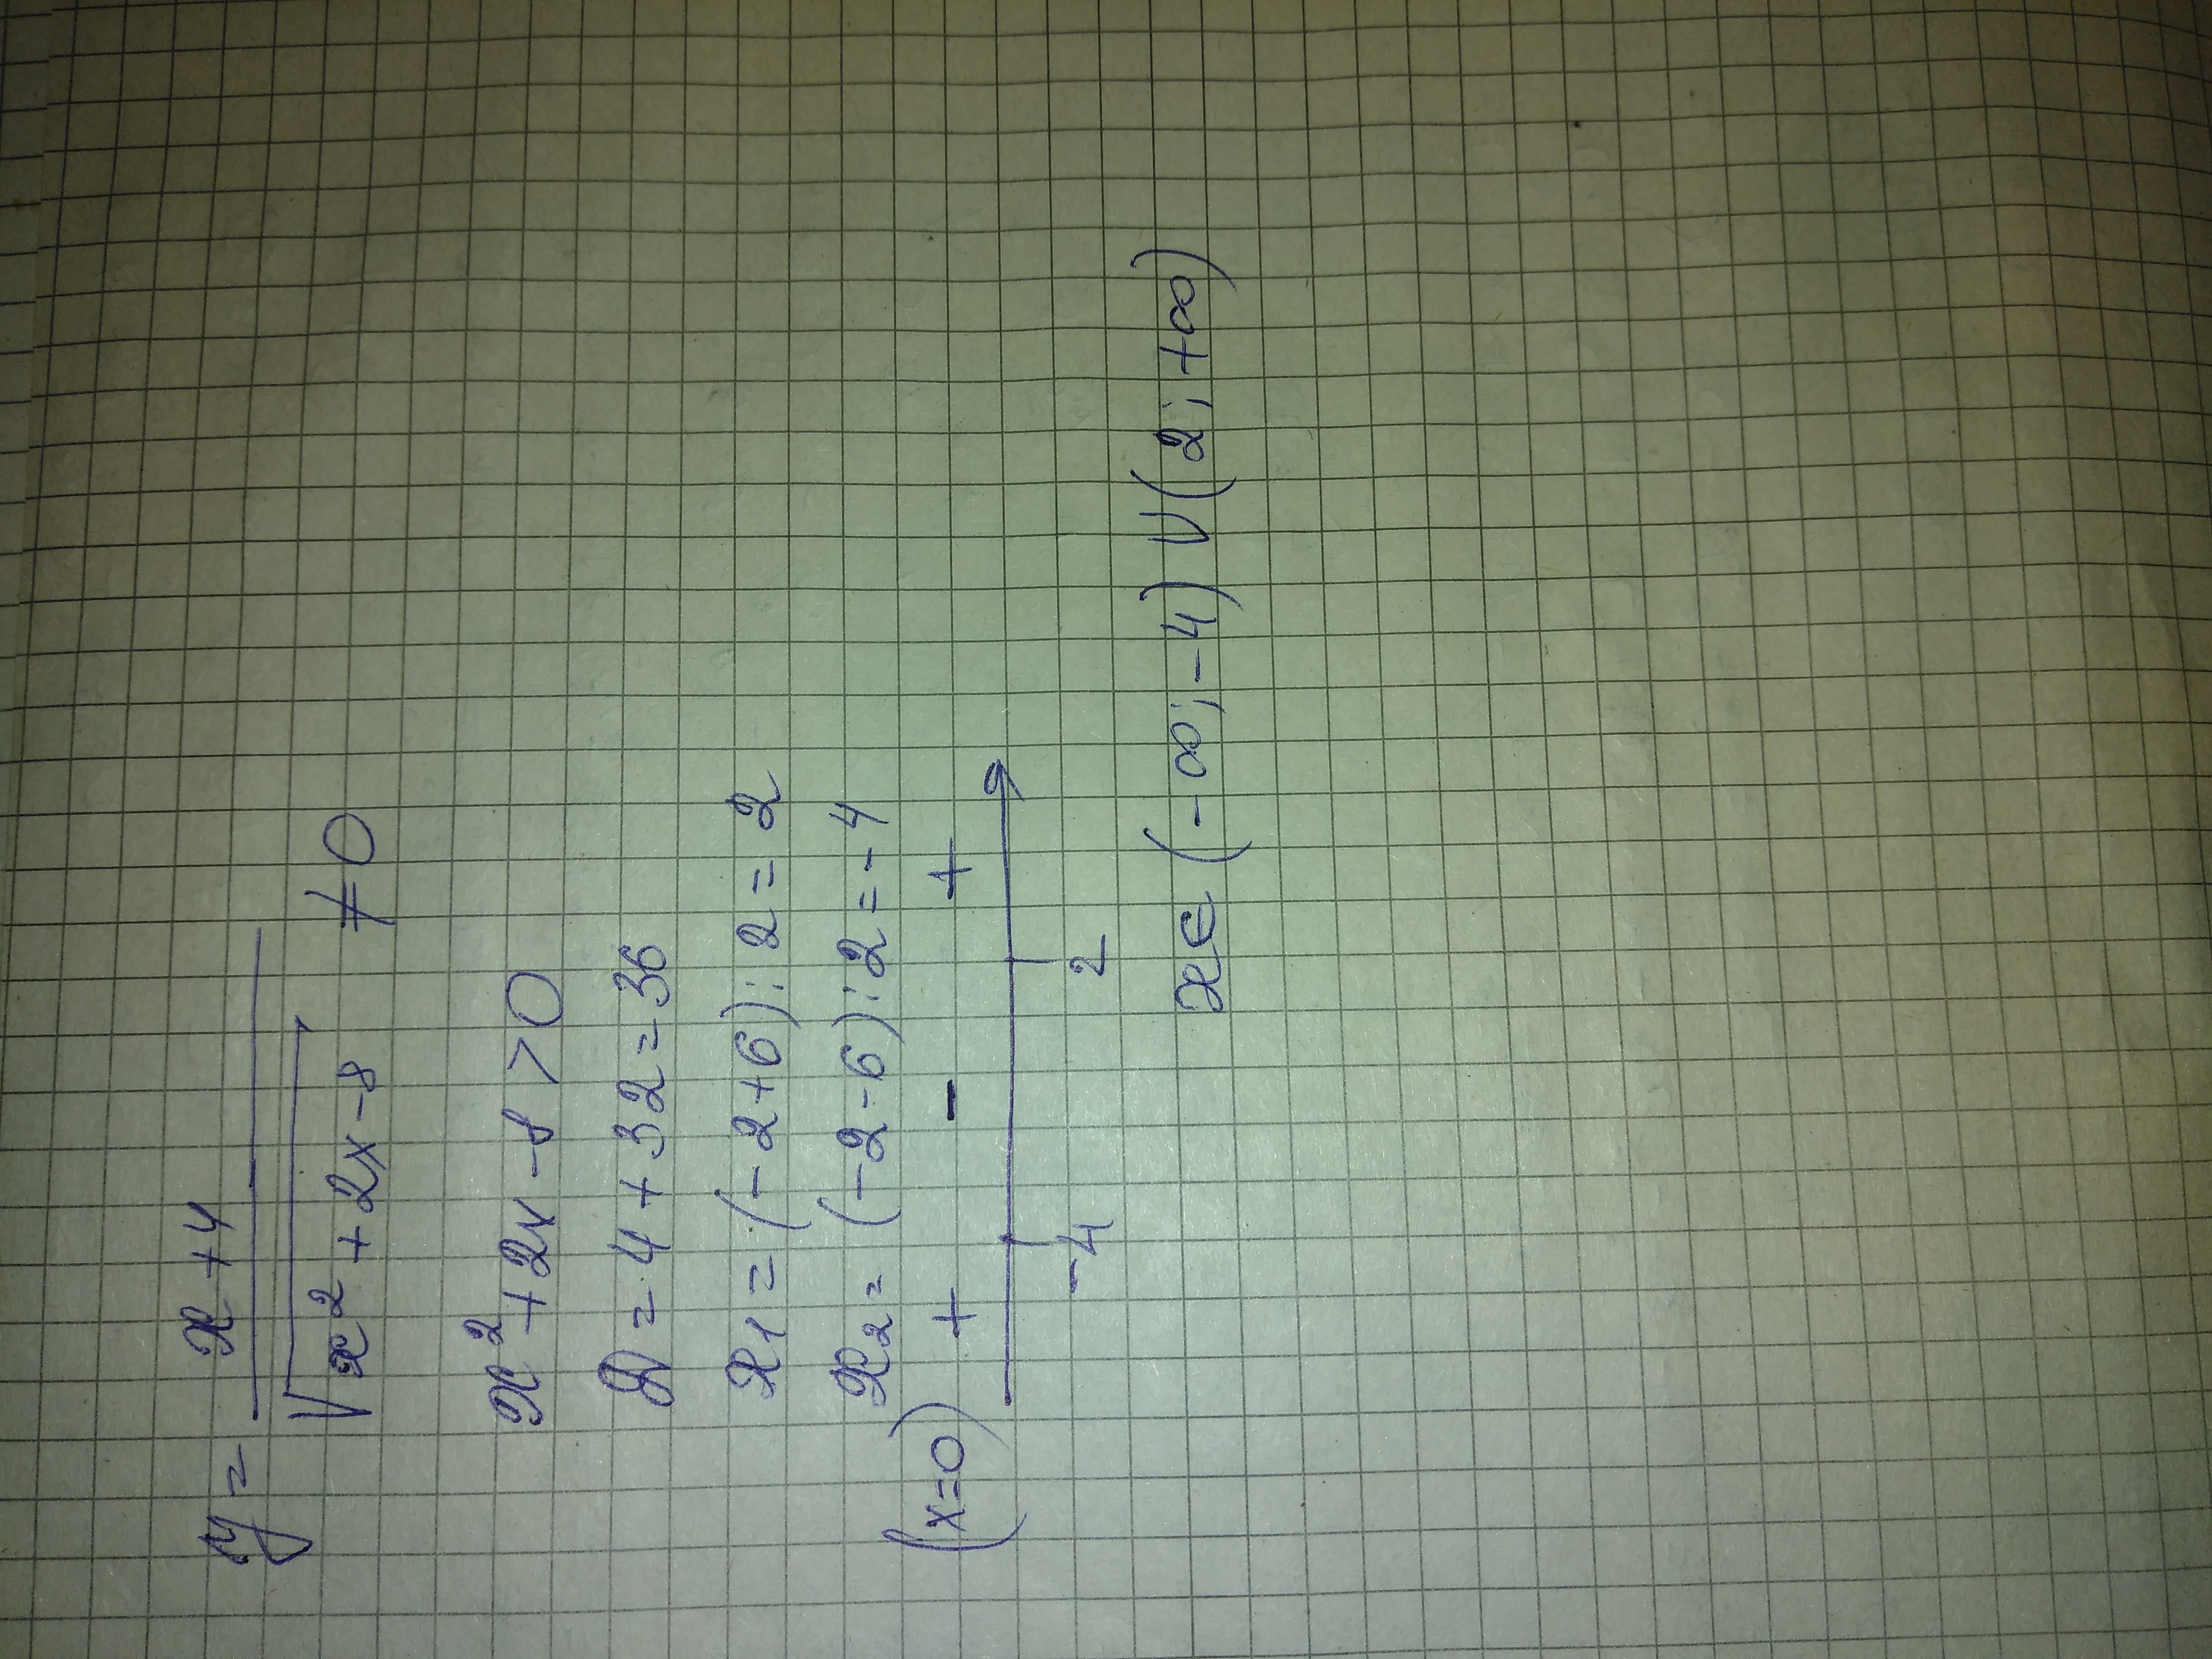 y = x+4
√x²+2x-8 ≠0
x²+2x-8>0
D=4+32=36
x1=(-2+6):2=2
x2=(-2-6):2=-4
(x=0) + - +
-4 2
x∈(-∞;-4)∪(2;+∞)